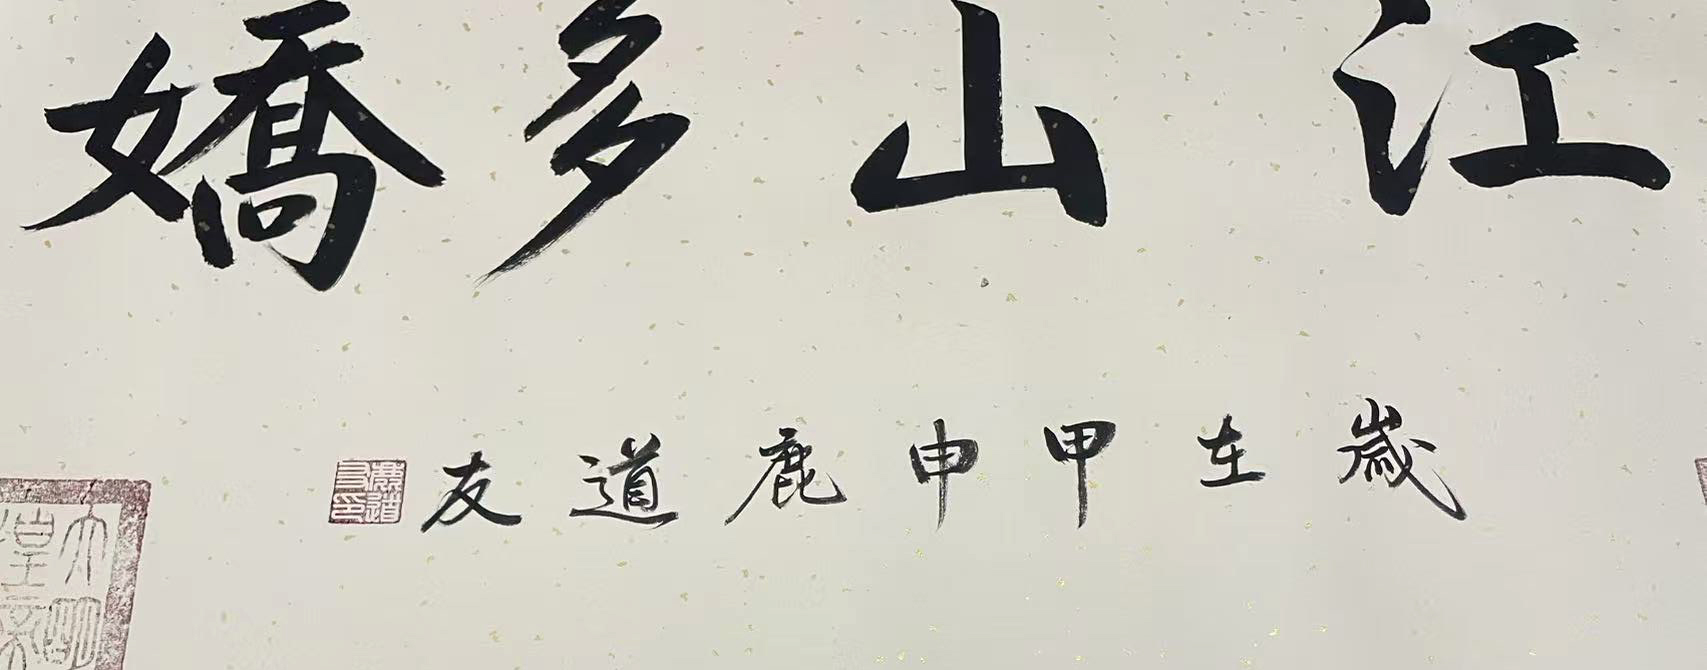 江山多嬌
歲在甲申鹿道友